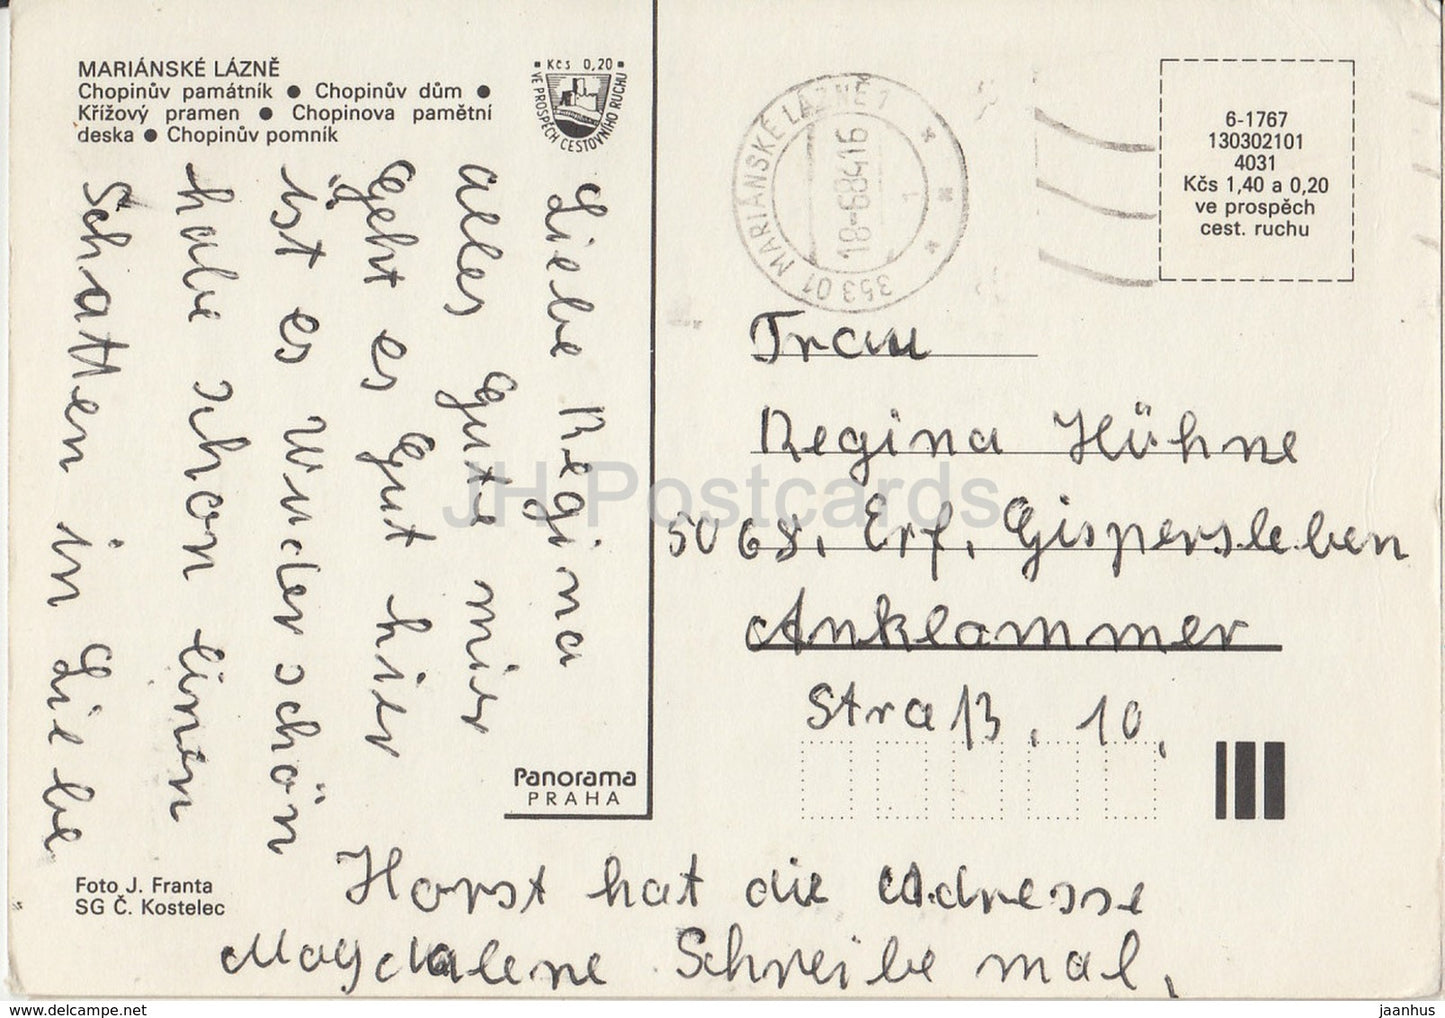 MARIÁNSKÉ LÁZNĚ
Chopinův památník ● Chopinův dům ●
Křížový pramen ● Chopinova pamětní
deska ● Chopinův pomník
Kčs 0,20
VE PROSPĚCH CESTOVNÍHO RUCHU
353 01 MARIÁNSKÉ LÁZNĚ 1
18-6 84 16
1
6-1767
130302101
4031
Kčs 1,40 a 0,20
ve prospěch
cest. ruchu
Liebe Regina
alles Gute mir
Geht es Gut hier
ist es Wunderschön
habe schon einen
Schatten in Liebe
Horst hat die Adresse
Magdalene Schreibe mal,
Frau
Regina Hühne
5068, Erf, Gispersleben
Anklammer
Straß, 10,
Panorama
PRAHA
Foto J. Franta
SG Č. Kostelec
JH Postcards
https://www.jhpostcards.com
jaanhus